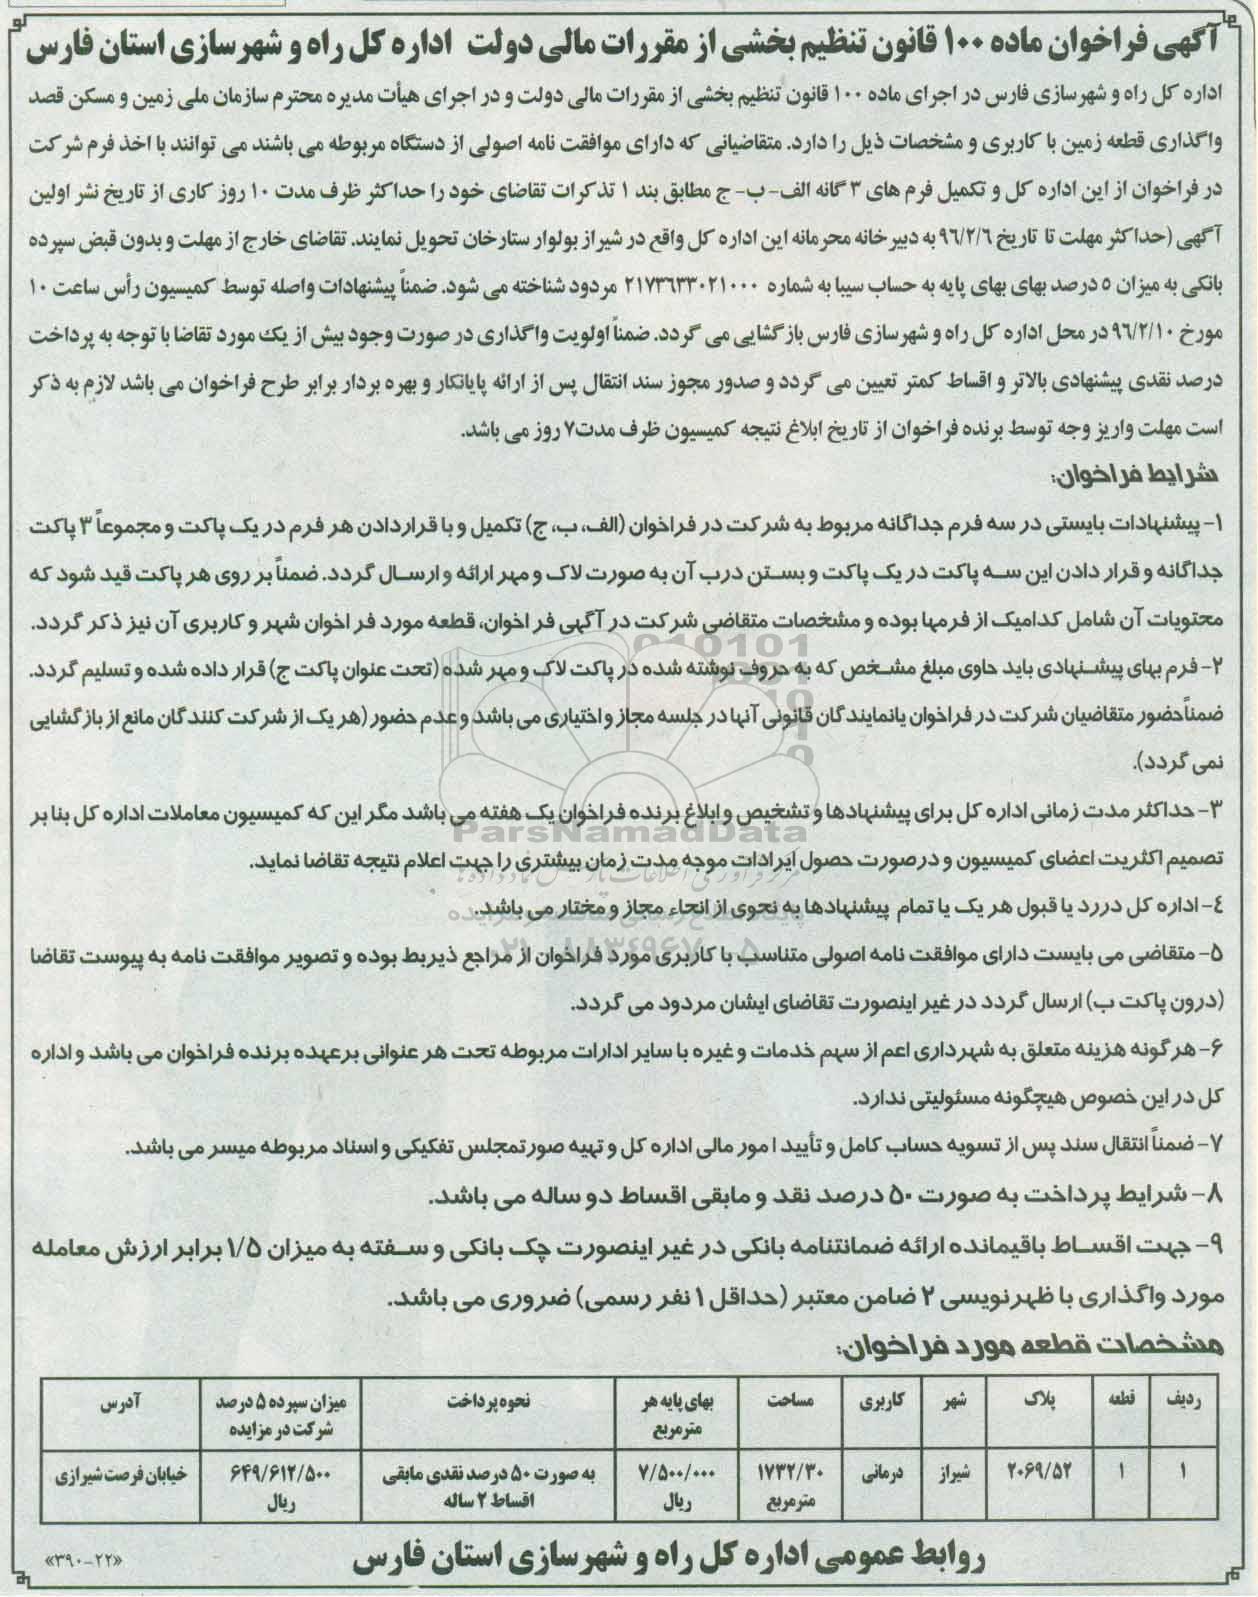 آگهی فراخوان ماده ۱۰۰ قانون تنظیم بخشی از مقررات مالی دولت اداره کل راه و شهرسازی استان فارس
اداره کل راه و شهرسازی فارس در اجرای ماده ۱۰۰ قانون تنظیم بخشی از مقررات مالی دولت و در اجرای هیأت مدیره محترم سازمان ملی زمین و مسکن قصد
واگذاری قطعه زمین با کاربری و مشخصات ذیل را دارد. متقاضیانی که دارای موافقت نامه اصولی از دستگاه مربوطه می باشند می توانند با اخذ فرم شرکت
در فراخوان از این اداره کل و تکمیل فرم های ۳ گانه الف- ب- ج مطابق بند ۱ تذکرات تقاضای خود را حداکثر ظرف مدت ۱۰ روز کاری از تاریخ نشر اولین
آگهی (حداکثر مهلت تا تاریخ ۹۶/۲/۶ به دبیرخانه محرمانه این اداره کل واقع در شیراز بولوار ستارخان تحویل نمایند. تقاضای خارج از مهلت و بدون قبض سپرده
بانکی به میزان ۵ درصد بهای بهای پایه به حساب سیبا به شماره ۲۱۷۳۶۳۳۰۲۱۰۰۰ مردود شناخته می شود. ضمناً پیشنهادات واصله توسط کمیسیون رأس ساعت ۱۰
مورخ ۹۶/۲/۱۰ در محل اداره کل راه و شهرسازی فارس بازگشایی می گردد. ضمناً اولویت واگذاری در صورت وجود بیش از یک مورد تقاضا با توجه به پرداخت
درصد نقدی پیشنهادی بالاتر و اقساط کمتر تعیین می گردد و صدور مجوز سند انتقال پس از ارائه پایانکار و بهره بردار برابر طرح فراخوان می باشد لازم به ذکر
است مهلت واریز وجه توسط برنده فراخوان از تاریخ ابلاغ نتیجه کمیسیون ظرف مدت ۷ روز می باشد.
شرایط فراخوان:
۱- پیشنهادات بایستی در سه فرم جداگانه مربوط به شرکت در فراخوان (الف، ب، ج) تکمیل و با قراردادن هر فرم در یک پاکت و مجموعاً ۳ پاکت
جداگانه و قرار دادن این سه پاکت در یک پاکت و بستن درب آن به صورت لاک و مهر ارائه و ارسال گردد. ضمناً بر روی هر پاکت قید شود که
محتویات آن شامل کدامیک از فرمها بوده و مشخصات متقاضی شرکت در آگهی فر اخوان، قطعه مورد فر اخوان شهر و کاربری آن نیز ذکر گردد.
۲- فرم بهای پیشنهادی باید حاوی مبلغ مشخص که به حروف نوشته شده در پاکت لاک و مهر شده (تحت عنوان پاکت ج) قرار داده شده و تسلیم گردد.
ضمناً حضور متقاضیان شرکت در فراخوان یا نمایندگان قانونی آنها در جلسه مجاز و اختیاری می باشد و عدم حضور (هر یک از شرکت کنندگان مانع از بازگشایی
نمی گردد).
۳- حداکثر مدت زمانی اداره کل برای پیشنهادها و تشخیص و ابلاغ برنده فراخوان یک هفته می باشد مگر این که کمیسیون معاملات اداره کل بنا بر
تصمیم اکثریت اعضای کمیسیون و درصورت حصول ایرادات موجه مدت زمان بیشتری را جهت اعلام نتیجه تقاضا نماید.
۴- اداره کل دررد یا قبول هر یک یا تمام پیشنهادها به نحوی از انحاء مجاز و مختار می باشد.
۵- متقاضی می بایست دارای موافقت نامه اصولی متناسب با کاربری مورد فراخوان از مراجع ذیربط بوده و تصویر موافقت نامه به پیوست تقاضا
(درون پاکت ب) ارسال گردد در غیر اینصورت تقاضای ایشان مردود می گردد.
۶- هر گونه هزینه متعلق به شهرداری اعم از سهم خدمات و غیره با سایر ادارات مربوطه تحت هر عنوانی برعهده برنده فراخوان می باشد و اداره
کل در این خصوص هیچگونه مسئولیتی ندارد.
۷- ضمناً انتقال سند پس از تسویه حساب کامل و تأیید ا مور مالی اداره کل و تهیه صورتمجلس تفکیکی و اسناد مربوطه میسر می باشد.
۸- شرایط پرداخت به صورت ۵۰ درصد نقد و مابقی اقساط دو ساله می باشد.
۹- جهت اقساط باقیمانده ارائه ضمانتنامه بانکی در غیر اینصورت چک بانکی و سفته به میزان ۱/۵ برابر ارزش معامله
مورد واگذاری با ظهرنویسی ۲ ضامن معتبر (حداقل ۱ نفر رسمی) ضروری می باشد.
مشخصات قطعه مورد فراخوان:
ردیف قطعه پلاک شهر کاربری مساحت بهای پایه هر مترمربع نحوه پرداخت میزان سپرده ۵ درصد شرکت در مزایده آدرس
۱ ۱ ۲۰۶۹/۵۲ شیراز درمانی ۱۷۳۲/۳۰ مترمربع ۷/۵۰۰/۰۰۰ ریال به صورت ۵۰ درصد نقدی مابقی اقساط ۲ ساله ۶۴۹/۶۱۲/۵۰۰ ریال خیابان فرصت شیرازی
روابط عمومی اداره کل راه و شهرسازی استان فارس
«۳۹۰-۲۲»
ParsNamadData